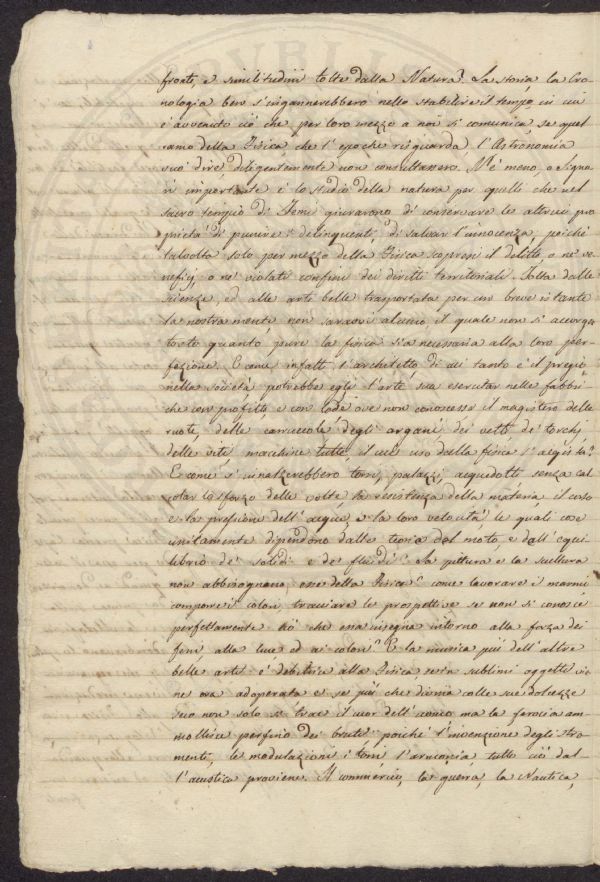 fronti, e similitudini tolte dalla Natura? La storia, la Cro-
nologia ben s'ingannerebbero nello stabilire il tempo, in cui
è avvenuto ciò che per loro mezzo a noi si comunica, se quel
ramo della Fisica che l'epoche risguarda, l'Astronomia
vuò dire diligentemente non consultassero. Né meno, o Signo-
ri importante è lo studio della natura per quelli che nel
sacro tempio di Temi giurarono di conservare le altrui pro
prietà di punire i delinquenti, di salvar l'innocenza, poichè
talvolta solo per mezzo della Fisica scopresi il delitto, o ne' ve-
nefizj, o ne' violati confini dei diritti territoriali. Tolta dalle
scienze, ed alle arti belle trasportata per un breve istante
la nostra mente, non saravvi alcuno, il quale non si accorga
tosto quanto pure la fisica sia necessaria alla loro per-
fezione. E come infatti l'architetto di cui tanto è il pregio
nella società potrebbe egli l'arte sua esercitar nelle fabbri-
che con profitto e con lode ove non conoscesse il magistero delle
ruote, delle carruccole degli argani dei vetti de' torchj
delle viti macchine tutte, il cui uso dalla fisica s'acqista?
E come s'innalzerebbero torri, palazzi, acquidotti senza cal
colar lo sforzo delle volte, la resistenza della materia, il corso
e la pressione dell'acque, e la loro velocità, le quali cose
unitamente dipendono dalle teoria del moto, e dall'equi-
librio de' solidi e de' fluidi? La pittura e la scultura
non abbisognano, esse della Fisica? come lavorare i marmi
comporre i colori, tracciare le prospettive se non si conosce
perfettamente ciò che essa insegna intorno alla forza dei
feni, alla luce ed ai colori? E la musica più dell'altre
belle arti è debitrice alla Fisica, se in sublimi oggetti vie
ne ora adoperata e se più che divina colle sue dolcezze
suo non solo si trae il cuor dell'uomo ma la ferocia am-
mollisce perfino dei bruti poichè l'invenzione degli stro-
menti, le modulazioni i toni l'armonia tutto ciò dal-
l'acustica proviene. Il commercio, la guerra, la Nautica,